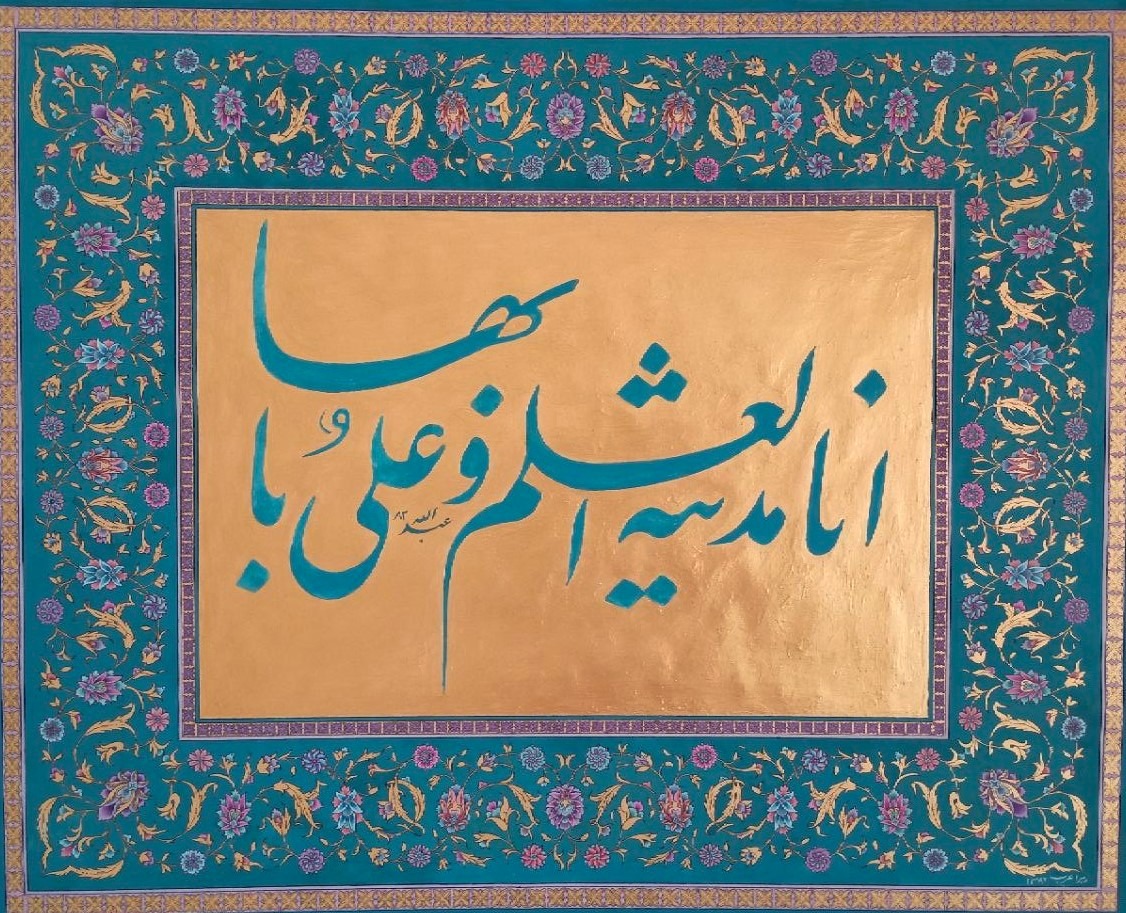 انا مدینة العلم و علیٌ بابها
عبدالله ۸۳